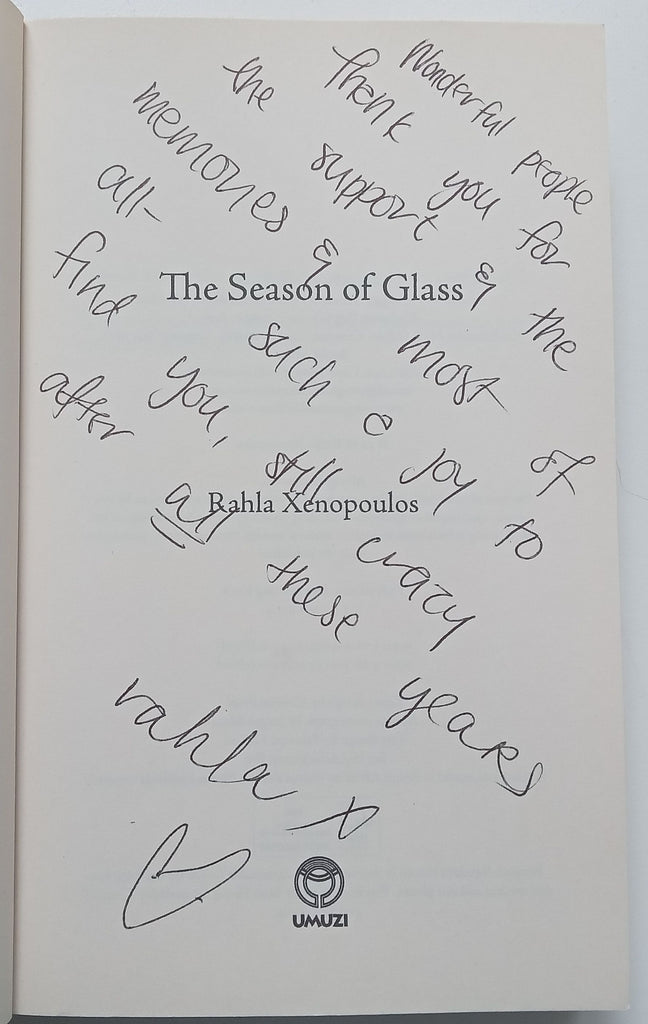 Wonderful people
Thank you for
the support & the
memories & most of
all- such a joy to
find you, still crazy
after all these years
rahla x
The Season of Glass
Rahla Xenopoulos
UMUZI